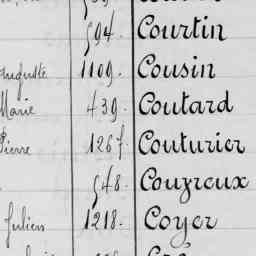 594. Courtin
Auguste 1109. Cousin
Marie 439. Coutard
Pierre 1267. Couturier
548. Couzreux
Julien 1218. Coyer